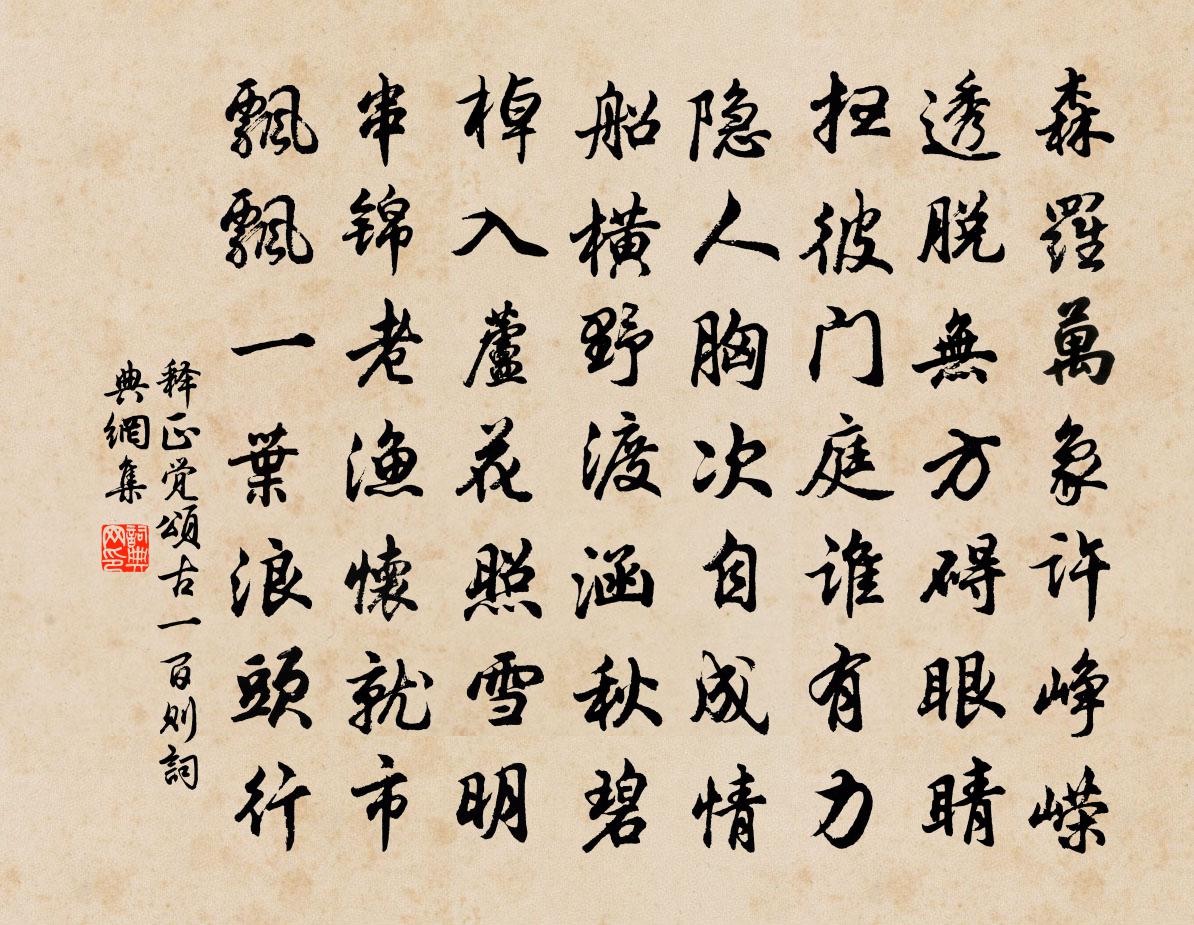 森羅萬象許崢嶸
透脫無方碍眼睛
扫彼门庭谁有力
隐人胸次自成情
船横野渡涵秋碧
棹入蘆花照雪明
串锦老漁懷就市
飄飄一葉浪頭行
释正觉頌古一百则詞
典網集
詞典网印